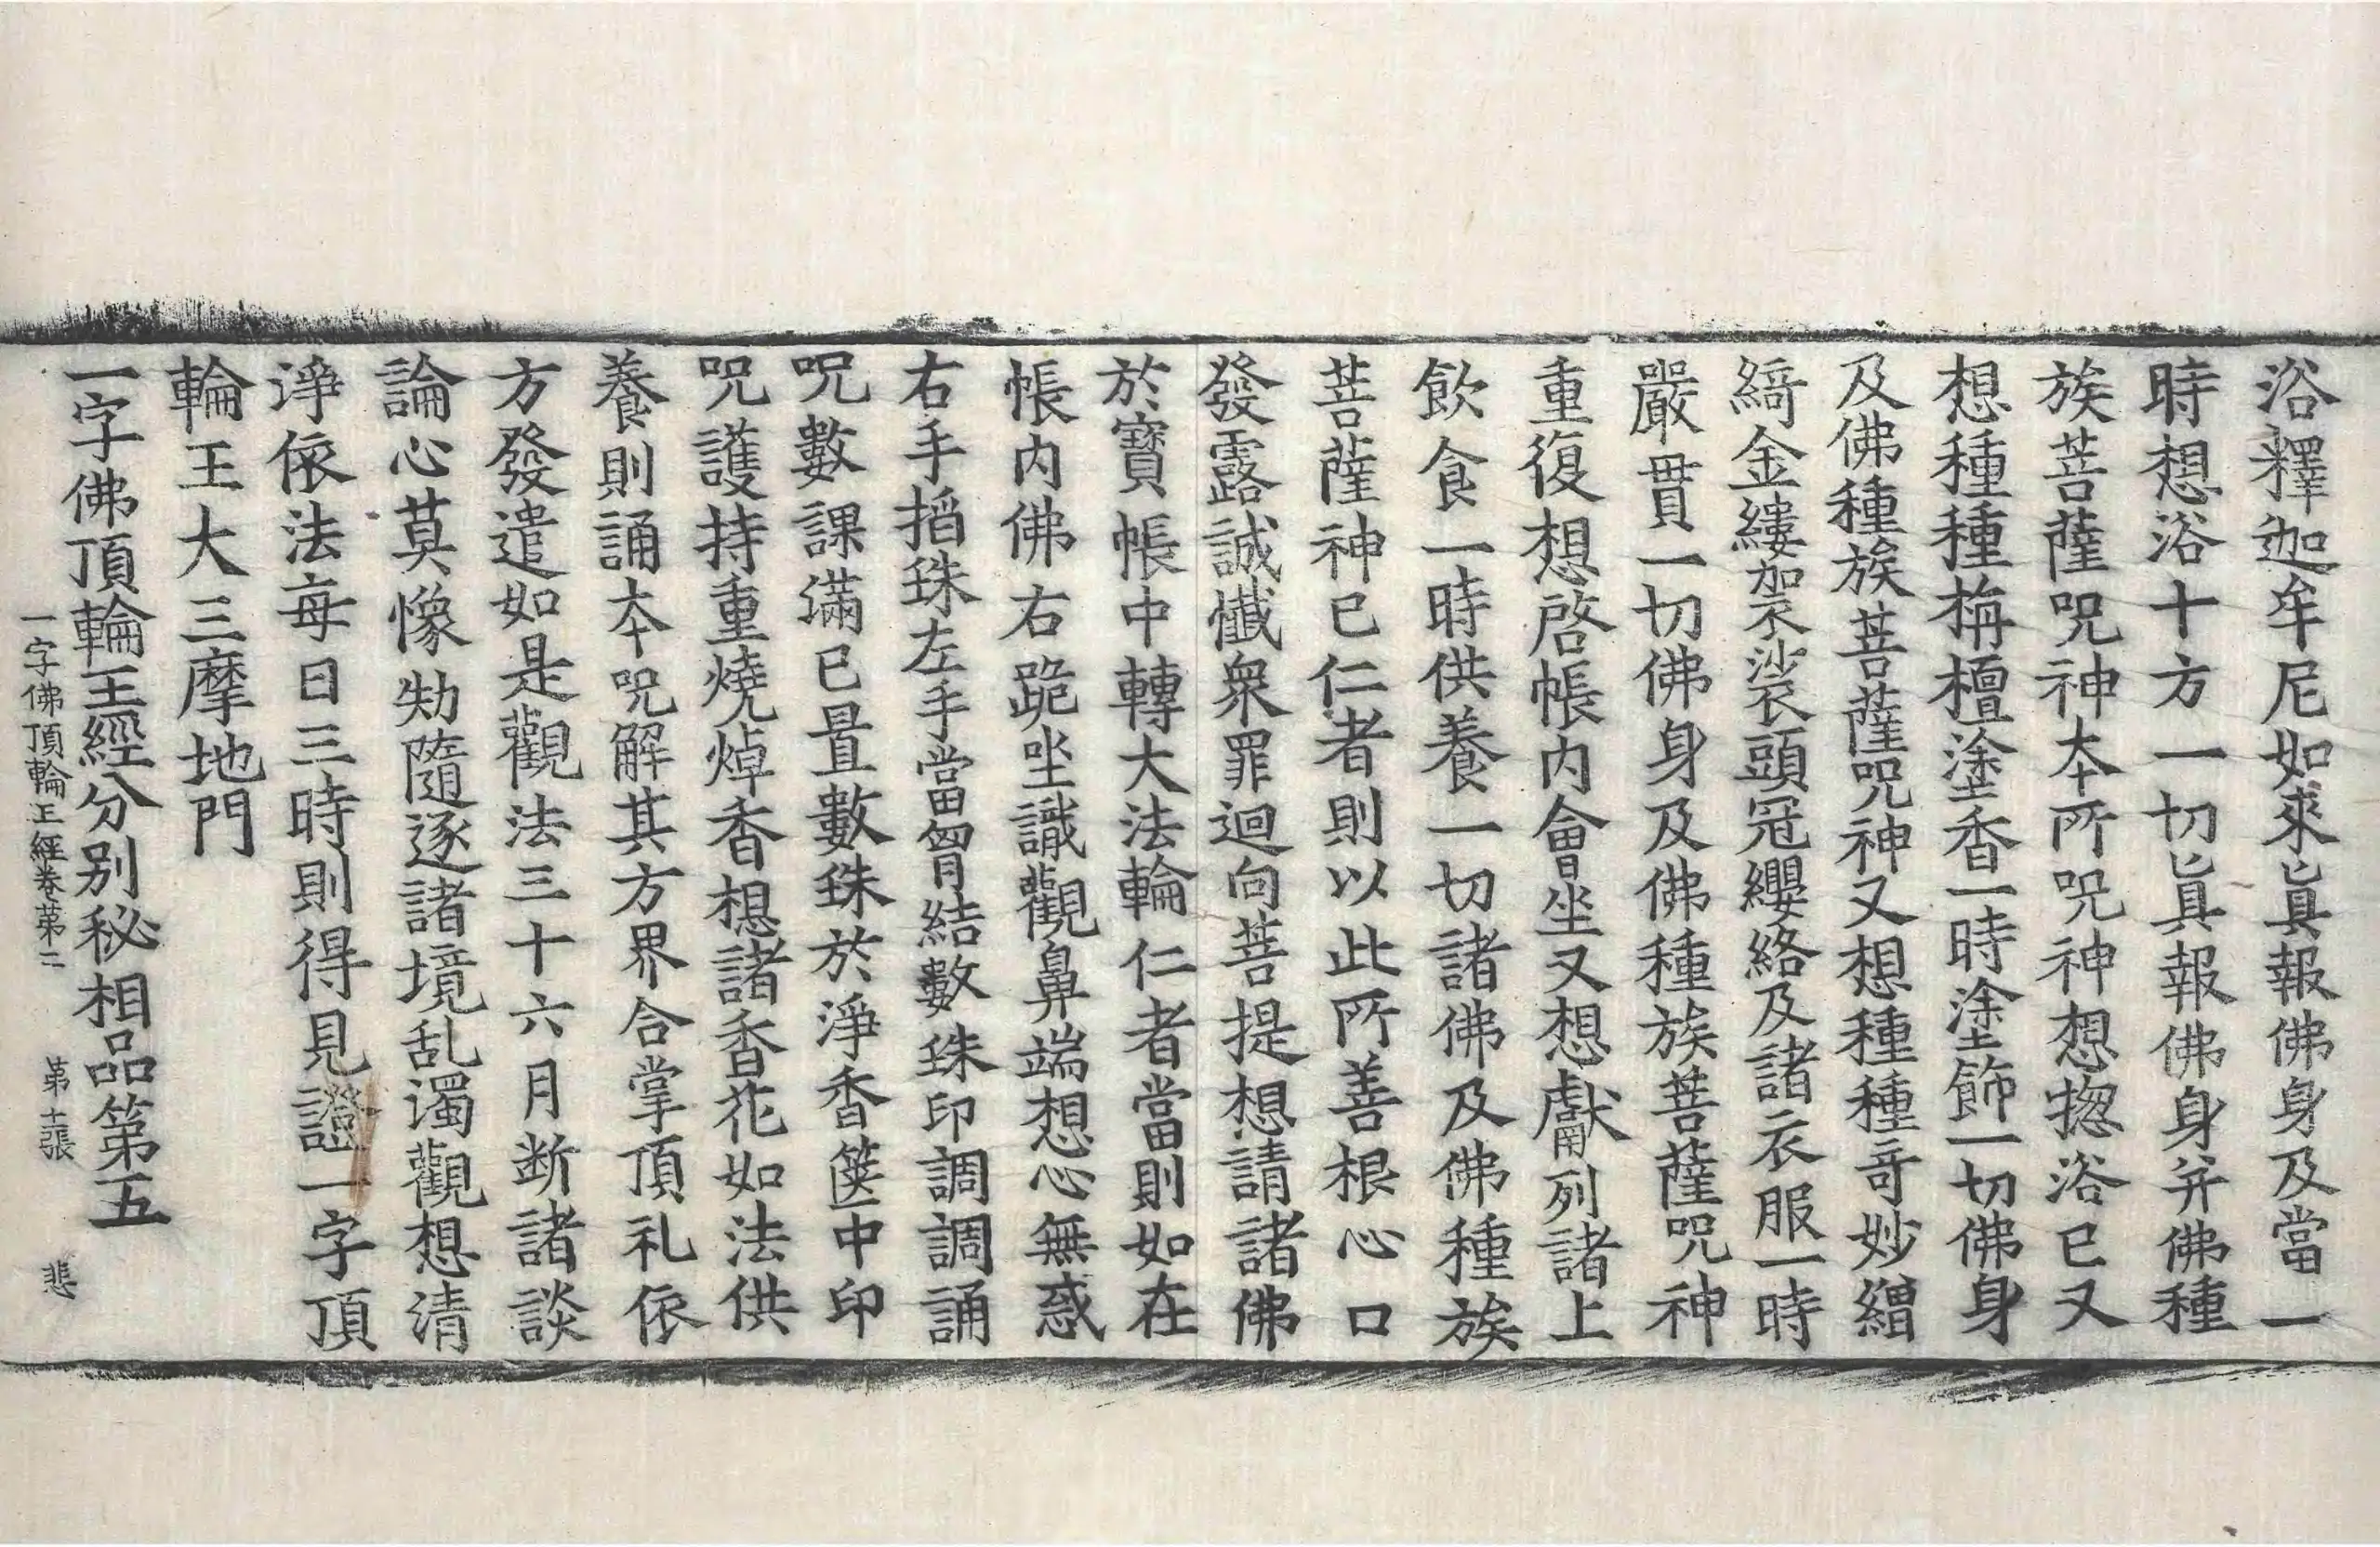 浴釋迦牟尼如來真報佛身及當一
時想浴十方一切真報佛身并佛種
族菩薩呪神本所呪神想揔浴已又
想種種栴檀塗香一時塗飾一切佛身
及佛種族菩薩呪神又想種種奇妙繒
綺金縷袈裟頭冠纓絡及諸衣服一時
嚴貫一切佛身及佛種族菩薩呪神
重復想啓帳內會坐又想獻列諸上
飲食一時供養一切諸佛及佛種族
菩薩神已仁者則以此所善根心口
發露誠懺衆罪迴向菩提想請諸佛
於寶帳中轉大法輪仁者當則如在
帳內佛右跪坐識觀鼻端想心無惑
右手搯珠左手當胷結數珠印調調誦
呪數課滿已置數珠於淨香篋中印
呪護持重燒焯香想諸香花如法供
養則誦本呪解其方界合掌頂礼依
方發遣如是觀法三十六月断諸談
論心莫懷㓜隨逐諸境乱濁觀想清
淨依法每日三時則得見證一字頂
輪王大三摩地門
一字佛頂輪王經分別秘相品第五
一字佛頂輪王經卷第二 第十張 悲